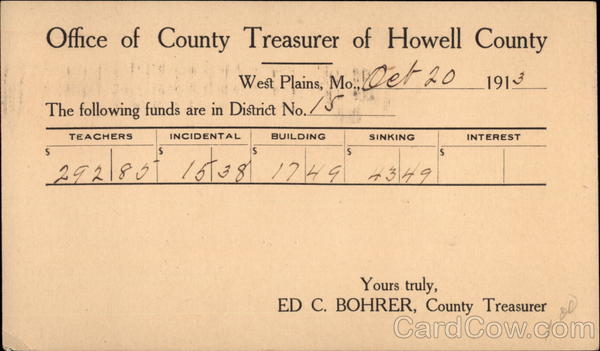 Office of County Treasurer of Howell County
West Plains, Mo., Oct 20 1913
The following funds are in District No. 15
TEACHERS INCIDENTAL BUILDING SINKING INTEREST
$ 292 85 $ 15 38 $ 17 49 $ 43 49 $
Yours truly,
ED C. BOHRER, County Treasurer
CardCow.com